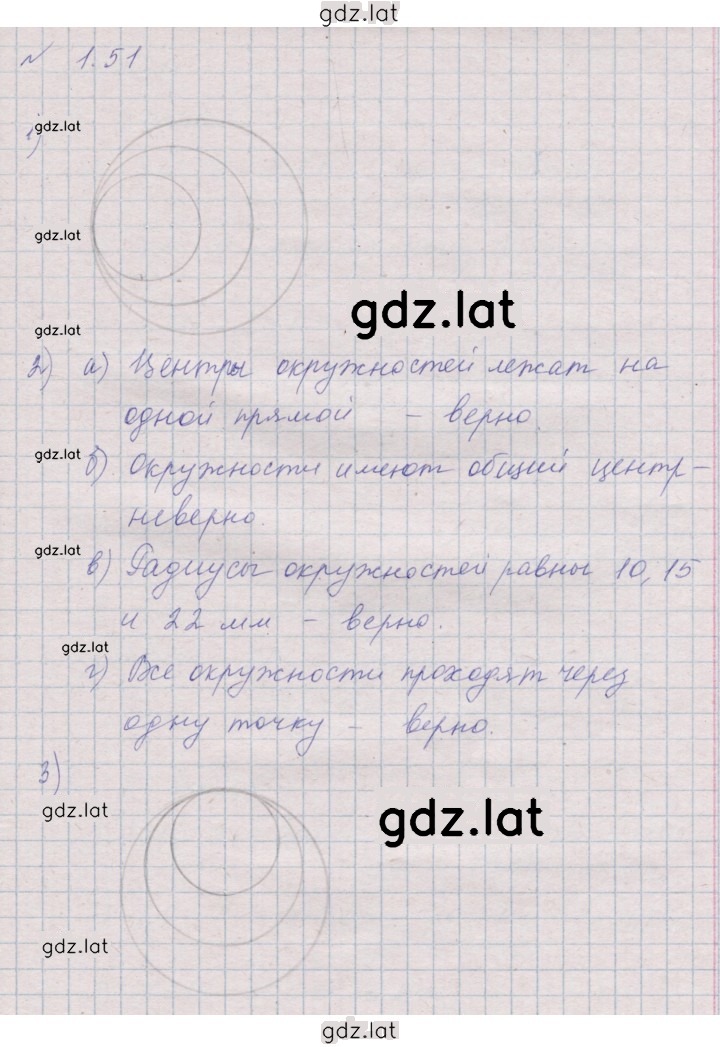 gdz.lat
№ 1.51
gdz.lat
1)
gdz.lat
gdz.lat
gdz.lat
2) а) Центры окружностей лежат на
одной прямой - верно.
gdz.lat
б) Окружности имеют общий центр -
неверно.
gdz.lat
в) Радиусы окружностей равны 10, 15
и 22 мм - верно.
gdz.lat
г) Все окружности проходят через
одну точку - верно.
3)
gdz.lat
gdz.lat
gdz.lat
gdz.lat